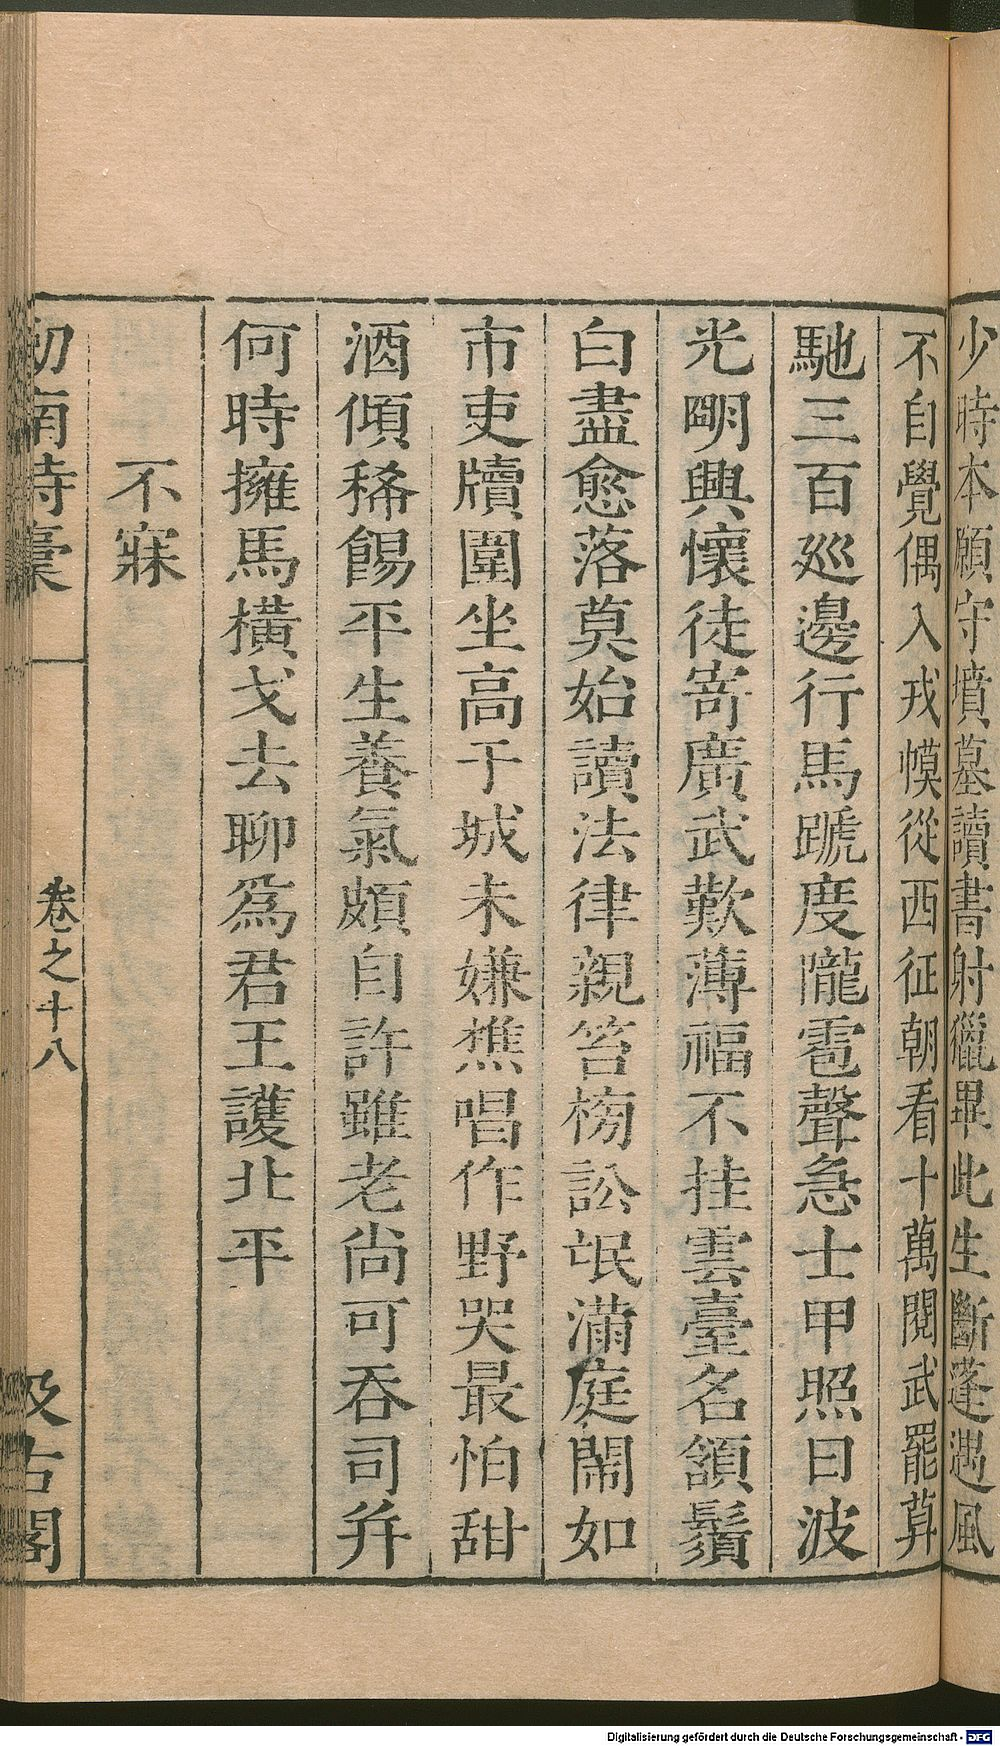 少時本願守墳墓讀書射獵畢此生斷蓬遇風
不自覺偶入戎幙從西征朝看十萬閱武罷募
馳三百巡邊行馬蹏度隴雹聲急士甲照日波
光朙興懷徒寄廣武歎薄福不挂雲臺名頷鬚
白盡愈落莫始讀法律親笞搒訟氓滿庭鬧如
市吏牘圍坐高于城未嫌樵唱作野哭最怕甜
酒傾稀餳平生養氣頗自許雖老尚可吞司并
何時擁馬橫戈去聊爲君王護北平
不寐
劒南詩稾
卷之十八
汲古閣
Digitalisierung gefördert durch die Deutsche Forschungsgemeinschaft - DFG